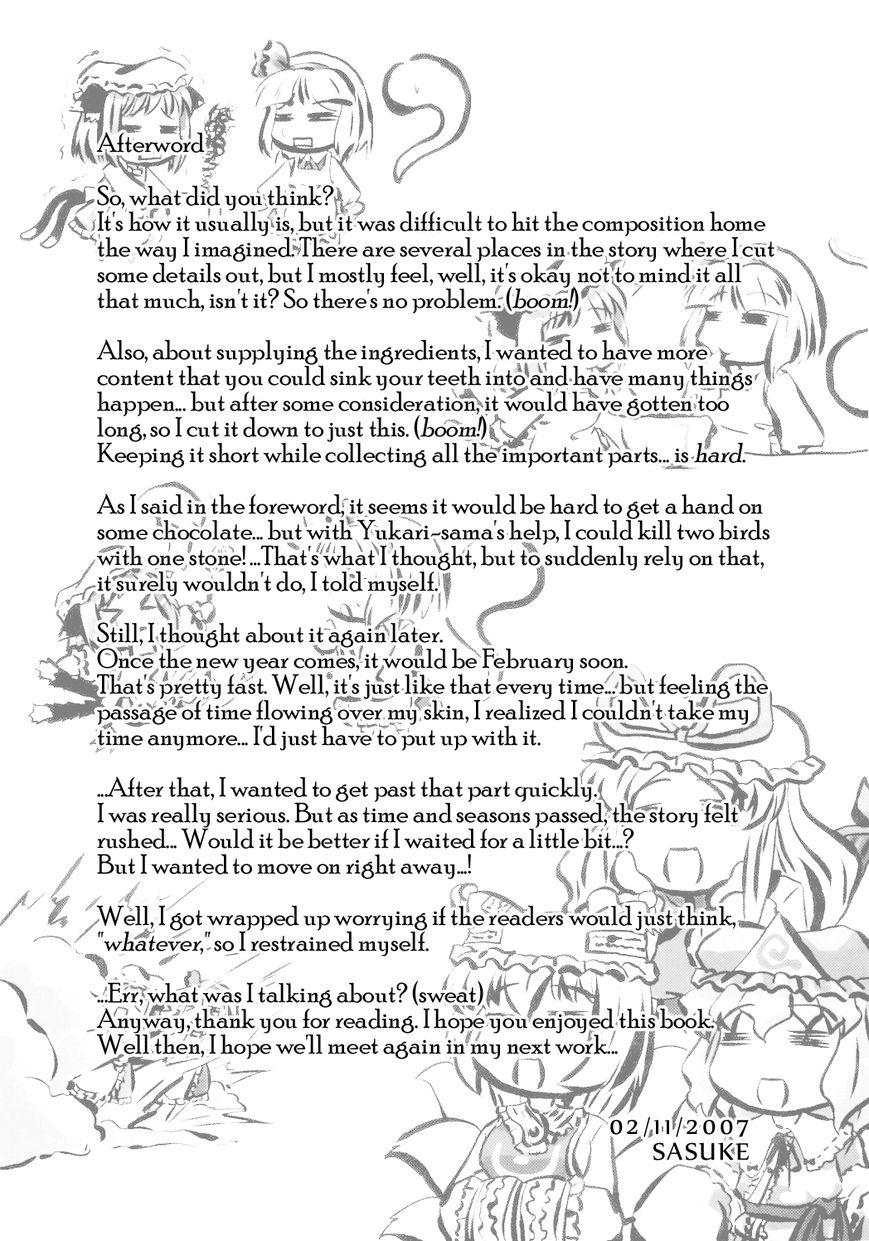 Afterword
So, what did you think?
It's how it usually is, but it was difficult to hit the composition home
the way I imagined. There are several places in the story where I cut
some details out, but I mostly feel, well, it's okay not to mind it all
that much, isn't it? So there's no problem. (boom!)
Also, about supplying the ingredients, I wanted to have more
content that you could sink your teeth into and have many things
happen... but after some consideration, it would have gotten too
long, so I cut it down to just this. (boom!)
Keeping it short while collecting all the important parts... is hard.
As I said in the foreword, it seems it would be hard to get a hand on
some chocolate... but with Yukari-sama's help, I could kill two birds
with one stone! ...That's what I thought, but to suddenly rely on that,
it surely wouldn't do, I told myself.
Still, I thought about it again later.
Once the new year comes, it would be February soon.
That's pretty fast. Well, it's just like that every time... but feeling the
passage of time flowing over my skin, I realized I couldn't take my
time anymore... I'd just have to put up with it.
...After that, I wanted to get past that part quickly.
I was really serious. But as time and seasons passed, the story felt
rushed... Would it be better if I waited for a little bit...?
But I wanted to move on right away...!
Well, I got wrapped up worrying if the readers would just think,
"whatever," so I restrained myself.
...Err, what was I talking about? (sweat)
Anyway, thank you for reading. I hope you enjoyed this book.
Well then, I hope we'll meet again in my next work...
02/11/2007
SASUKE